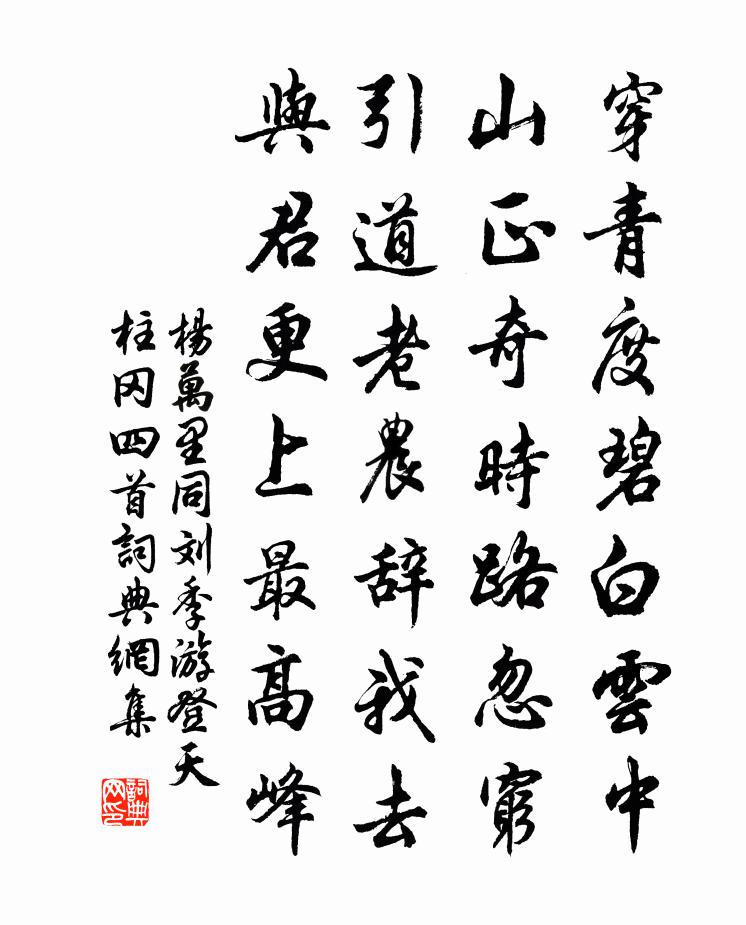 穿青度碧白雲中
山正奇時路忽窮
引道老農辞我去
與君更上最高峰
楊萬里同刘季游登天
柱冈四首詞典網集
詞典网印